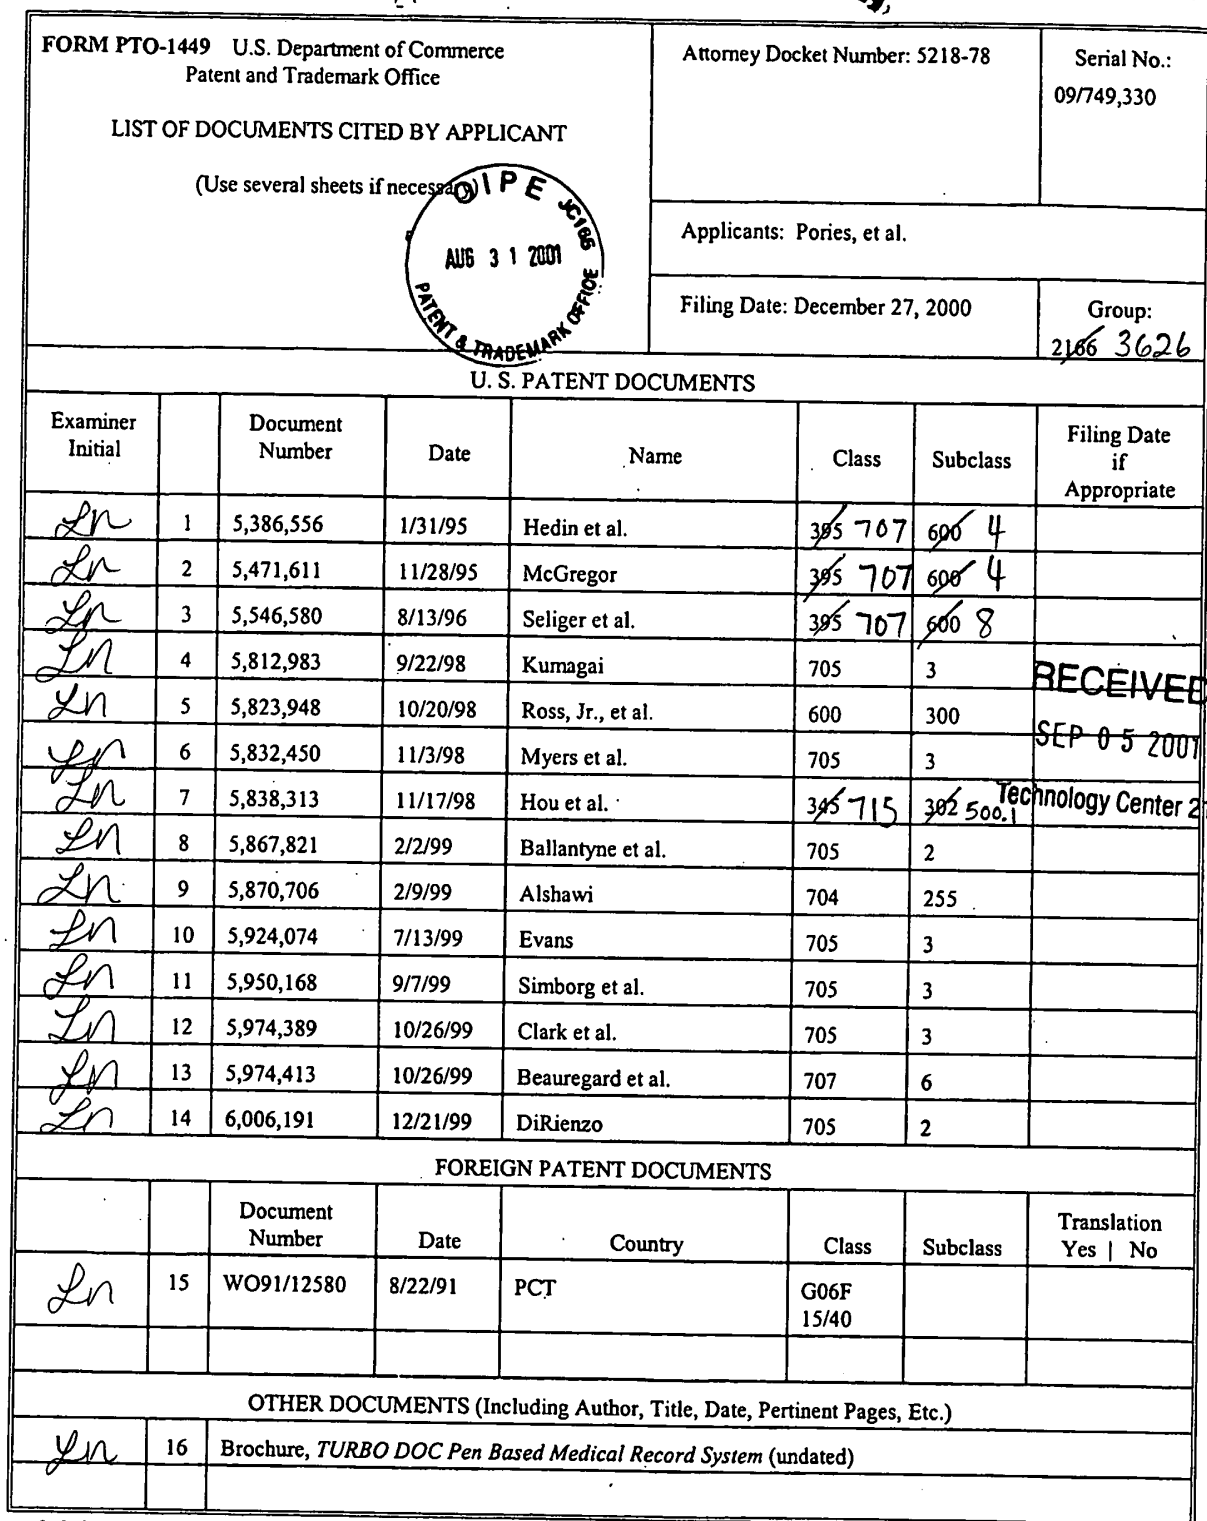 FORM PTO-1449 U.S. Department of Commerce
Patent and Trademark Office
LIST OF DOCUMENTS CITED BY APPLICANT
(Use several sheets if necessary)
OIPE JC165
AUG 31 2001
PATENT & TRADEMARK OFFICE
Attorney Docket Number: 5218-78
Serial No.:
09/749,330
Applicants: Pories, et al.
Filing Date: December 27, 2000
Group:
2166 3626
U. S. PATENT DOCUMENTS
Examiner Initial Document Number Date Name Class Subclass Filing Date if Appropriate
Ln 1 5,386,556 1/31/95 Hedin et al. 395 707 600 4
Ln 2 5,471,611 11/28/95 McGregor 395 707 600 4
Ln 3 5,546,580 8/13/96 Seliger et al. 395 707 600 8
Ln 4 5,812,983 9/22/98 Kumagai 705 3
RECEIVED
Ln 5 5,823,948 10/20/98 Ross, Jr., et al. 600 300
SEP 05 2001
Ln 6 5,832,450 11/3/98 Myers et al. 705 3
Ln 7 5,838,313 11/17/98 Hou et al. 345 715 302 500.1
Technology Center 2
Ln 8 5,867,821 2/2/99 Ballantyne et al. 705 2
Ln 9 5,870,706 2/9/99 Alshawi 704 255
Ln 10 5,924,074 7/13/99 Evans 705 3
Ln 11 5,950,168 9/7/99 Simborg et al. 705 3
Ln 12 5,974,389 10/26/99 Clark et al. 705 3
Ln 13 5,974,413 10/26/99 Beauregard et al. 707 6
Ln 14 6,006,191 12/21/99 DiRienzo 705 2
FOREIGN PATENT DOCUMENTS
Document Number Date Country Class Subclass Translation Yes | No
Ln 15 WO91/12580 8/22/91 PCT G06F
15/40
OTHER DOCUMENTS (Including Author, Title, Date, Pertinent Pages, Etc.)
Ln 16 Brochure, TURBO DOC Pen Based Medical Record System (undated)